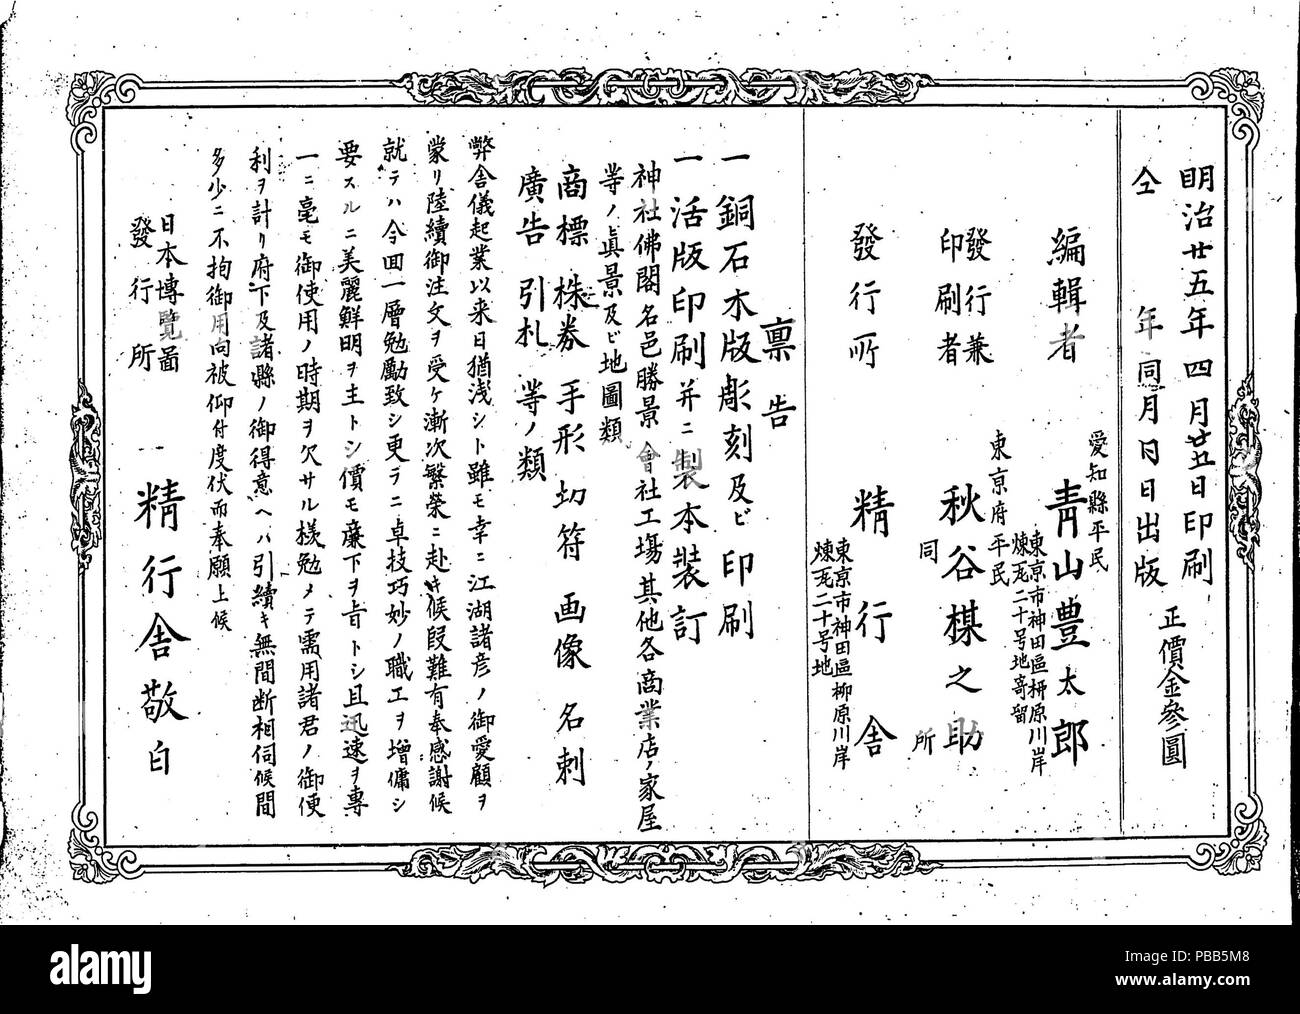 明治廿五年四月廿五日印刷
仝 年同月日日出版
正價金參圓
愛知縣平民
編輯者 靑山豊太郎
東京市神田區柳原川岸
煉瓦二十号地寄留
東京府平民
發行兼
印刷者 秋谷楳之助
同 所
發行所 精行舎
東京市神田區柳原川岸
煉瓦二十号地
禀告
一銅石木版彫刻及ビ印刷
一活版印刷并ニ製本装訂
神社佛閣名邑勝景會社工塲其他各商業店ノ家屋
等ノ眞景及ビ地圖類
商標 株券 手形 切符 画像 名刺
廣告 引札 等ノ類
弊舎儀起業以来日猶浅シト雖モ幸ニ江湖諸彦ノ御愛顧ヲ
蒙リ陸續御注文ヲ受ケ漸次繁榮ニ赴キ候段難有奉感謝候
就テハ今回一層勉勵致シ更ラニ卓技巧妙ノ職工ヲ増傭シ
要スルニ美麗鮮明ヲ主トシ價モ廉下ヲ旨トシ且迅速ヲ專
一ニ毫モ御使用ノ時期ヲ欠サル様勉メテ需用諸君ノ御便
利ヲ計リ府下及諸縣ノ御得意ヘハ引續キ無間断相伺候間
多少ニ不拘御用向被仰付度伏而奉願上候
日本博覧啚
發行所 精行舎敬白
alamy
Image ID: PBB5M8
www.alamy.com